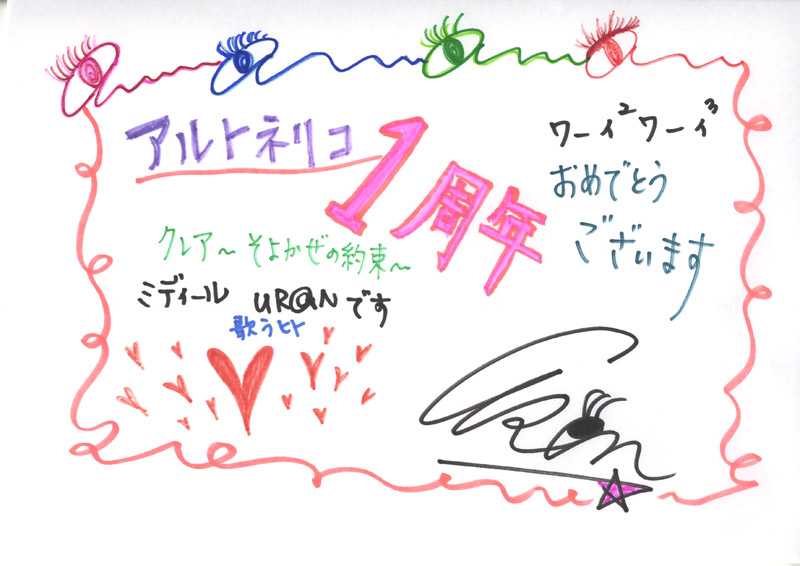 アルトネリコ
1周年
ワーイ²ワーイ³
おめでとう
ございます
クレア～そよかぜの約束～
ミディール UR@Nです
歌うヒト